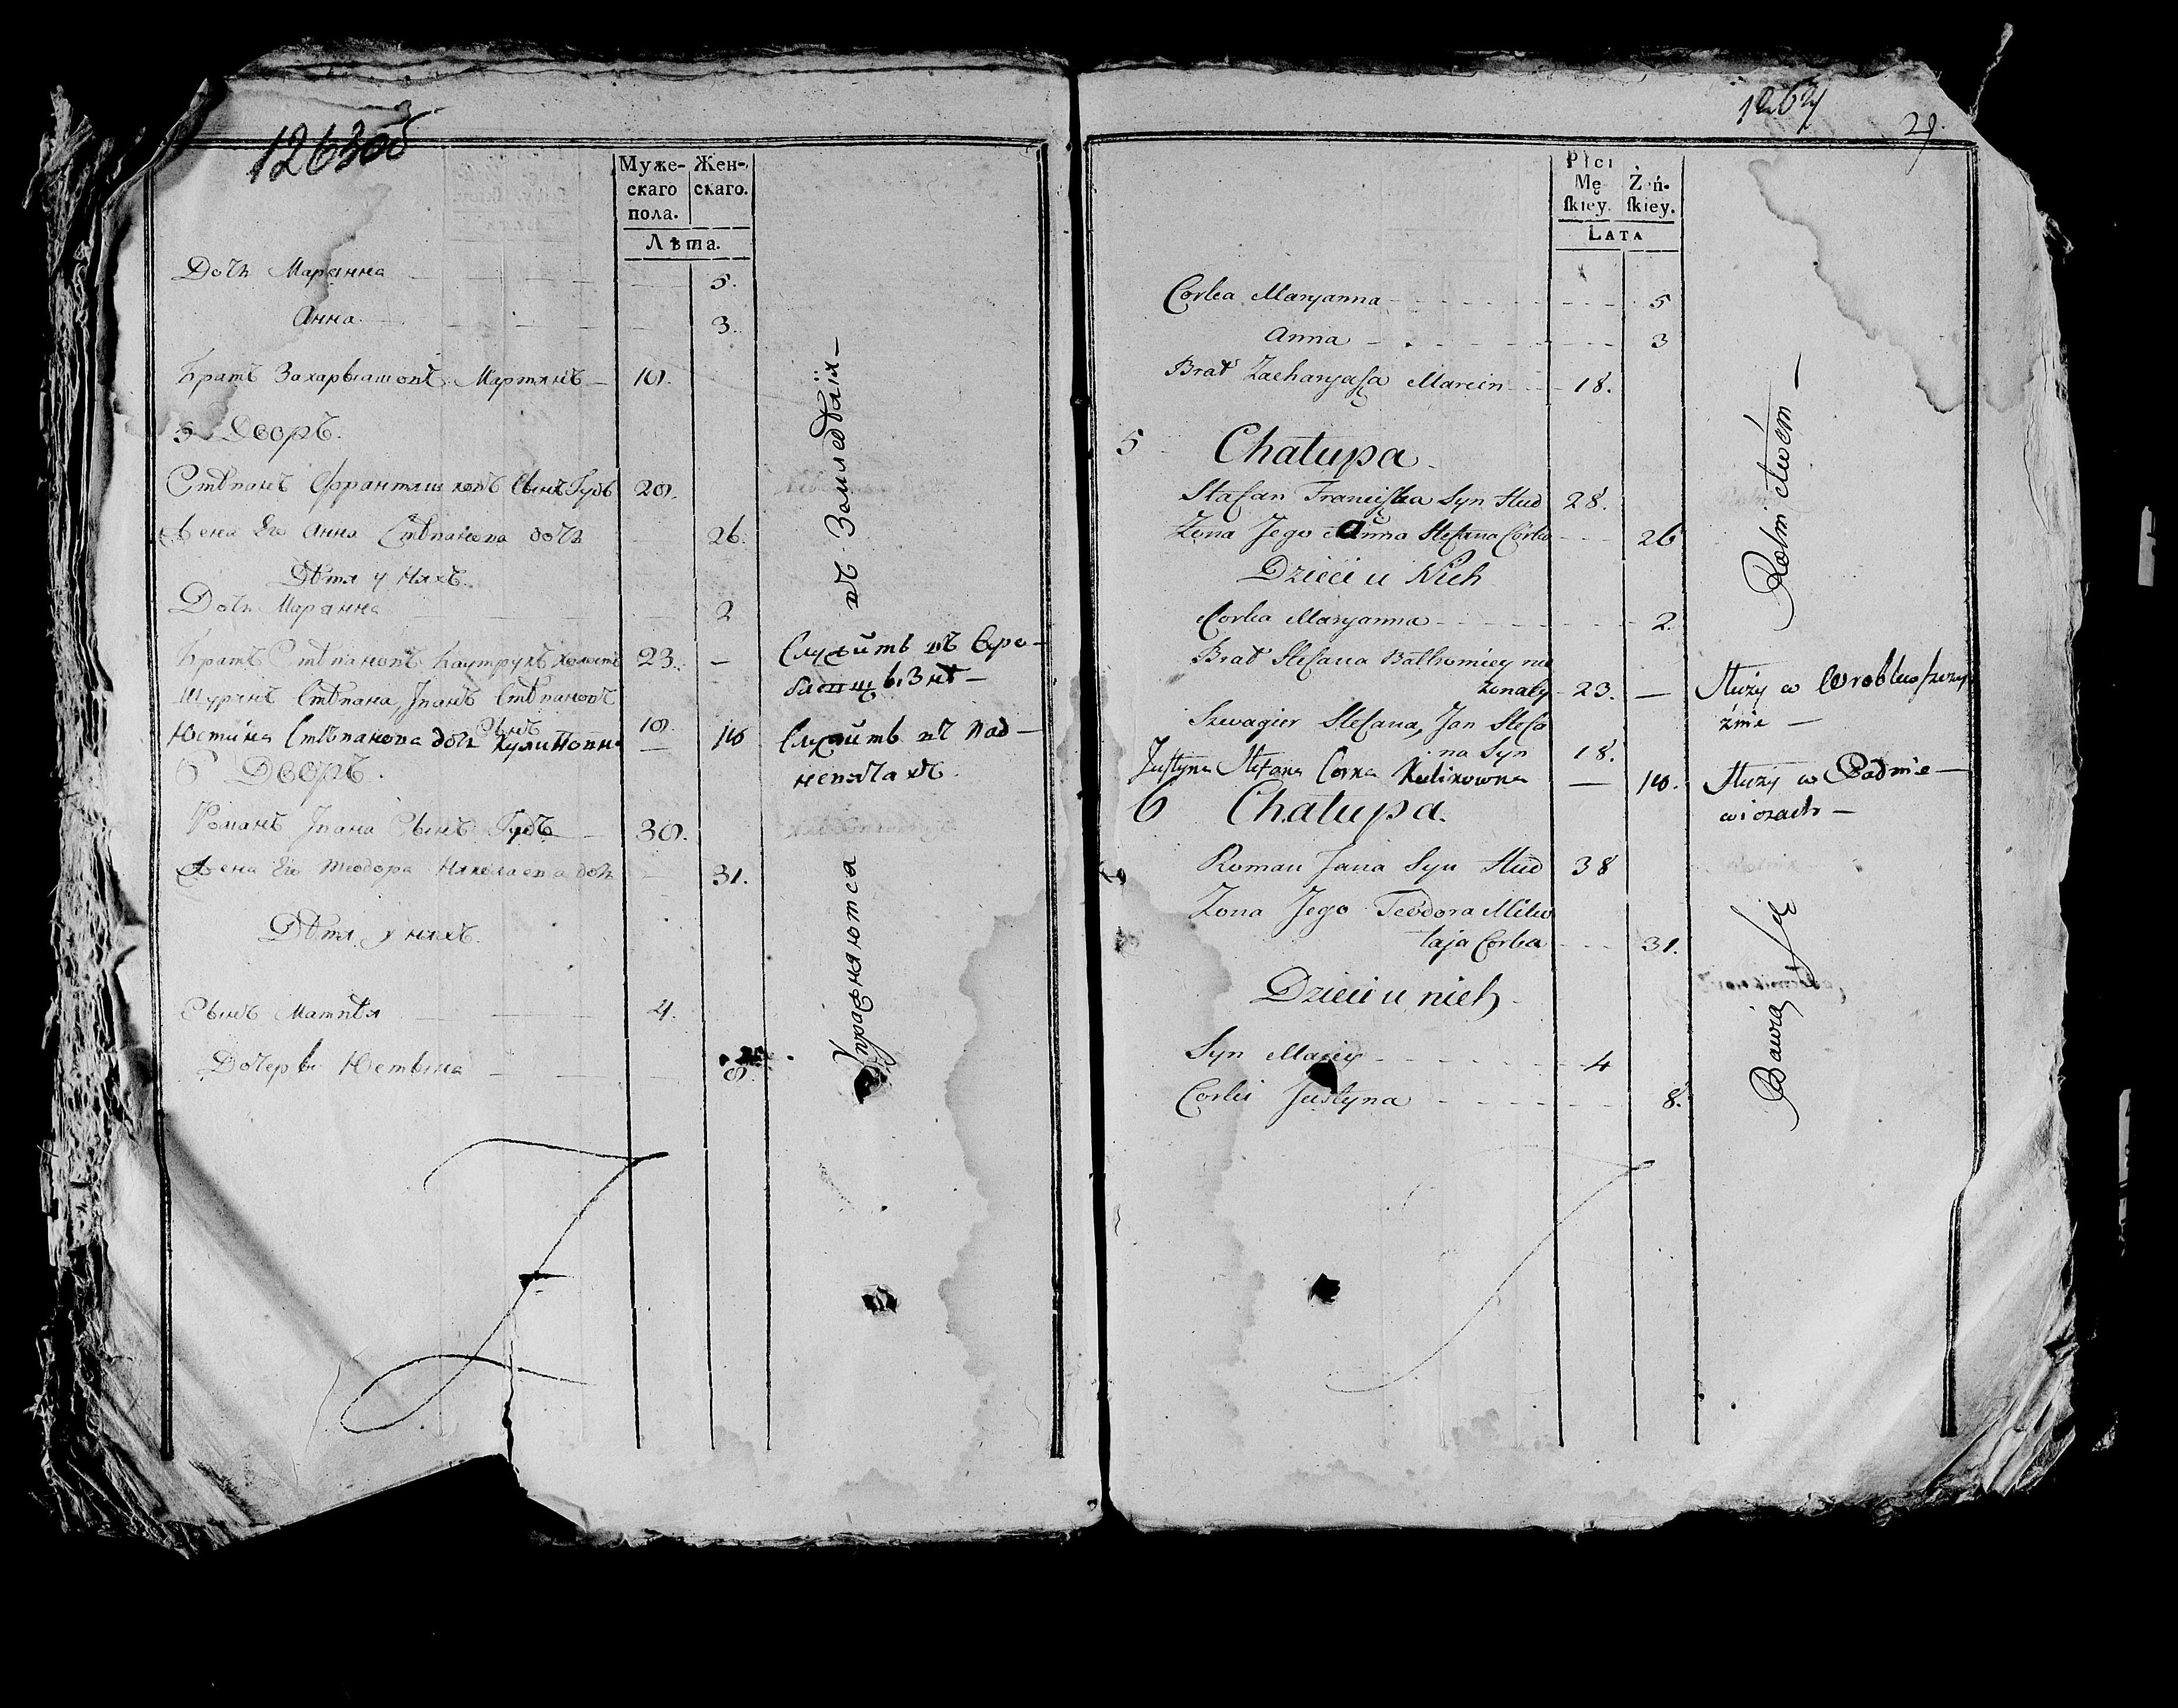 1263об
Муже-
скаго
пола.
Жен-
скаго.
Лѣта.
Дочь Марянна 5.
Анна 3.
Братъ Захарыашовъ Мартинъ 18.
5 Дворъ.
Стѣпанъ Францишковъ Сынъ Гудъ 28.
Жена Его Анна Стѣпанова дочь 26.
Дѣти у нихъ.
Дочь Марянна 2
Братъ Стѣпановъ Баутрукъ холостъ 23. —
Шуринъ Стѣпана, Iванъ Стѣпановъ
Сынъ 18.
Юстина Стѣпанова дочь — 18
6 Дворъ.
Романъ Iвана Сынъ Гудъ 38.
Жена Его Теодора Николаева дочь 31.
Дѣти у нихъ.
Сынъ Матвѣй 4.
Дочери Юстына 8.
Упражняются
въ Земледѣліи —
Служитъ въ
Служитъ въ Пад-
невѣчахъ.
1264
29.
Płci
Mę-
skiey.
Żeń-
skiey.
Lata
Corka Maryanna 5
Anna 3
Brat Zacharyasza Marcin 18.
5 Chałupa
Stefan Franciszka Syn Hud 28.
Zona Jego Anna Stefana Corka 26
Dzieci u Nich
Corka Maryanna 2.
Brat Stefana Bałtromiey nie
zonaty 23. —
Służy w
źnie —
Szwagier Stefana, Jan Stefa
na Syn 18.
Justyna Stefana Corka Kulikowna — 18.
Służy w Padnie-
wiczach —
6 Chałupa.
Roman Jana Syn Hud 38
Zona Jego Teodora Miko
łaja Corka 31.
Dzieci u nich
Syn Maciey 4
Corki Justyna 8.
Bawią się
Rolnictwem —